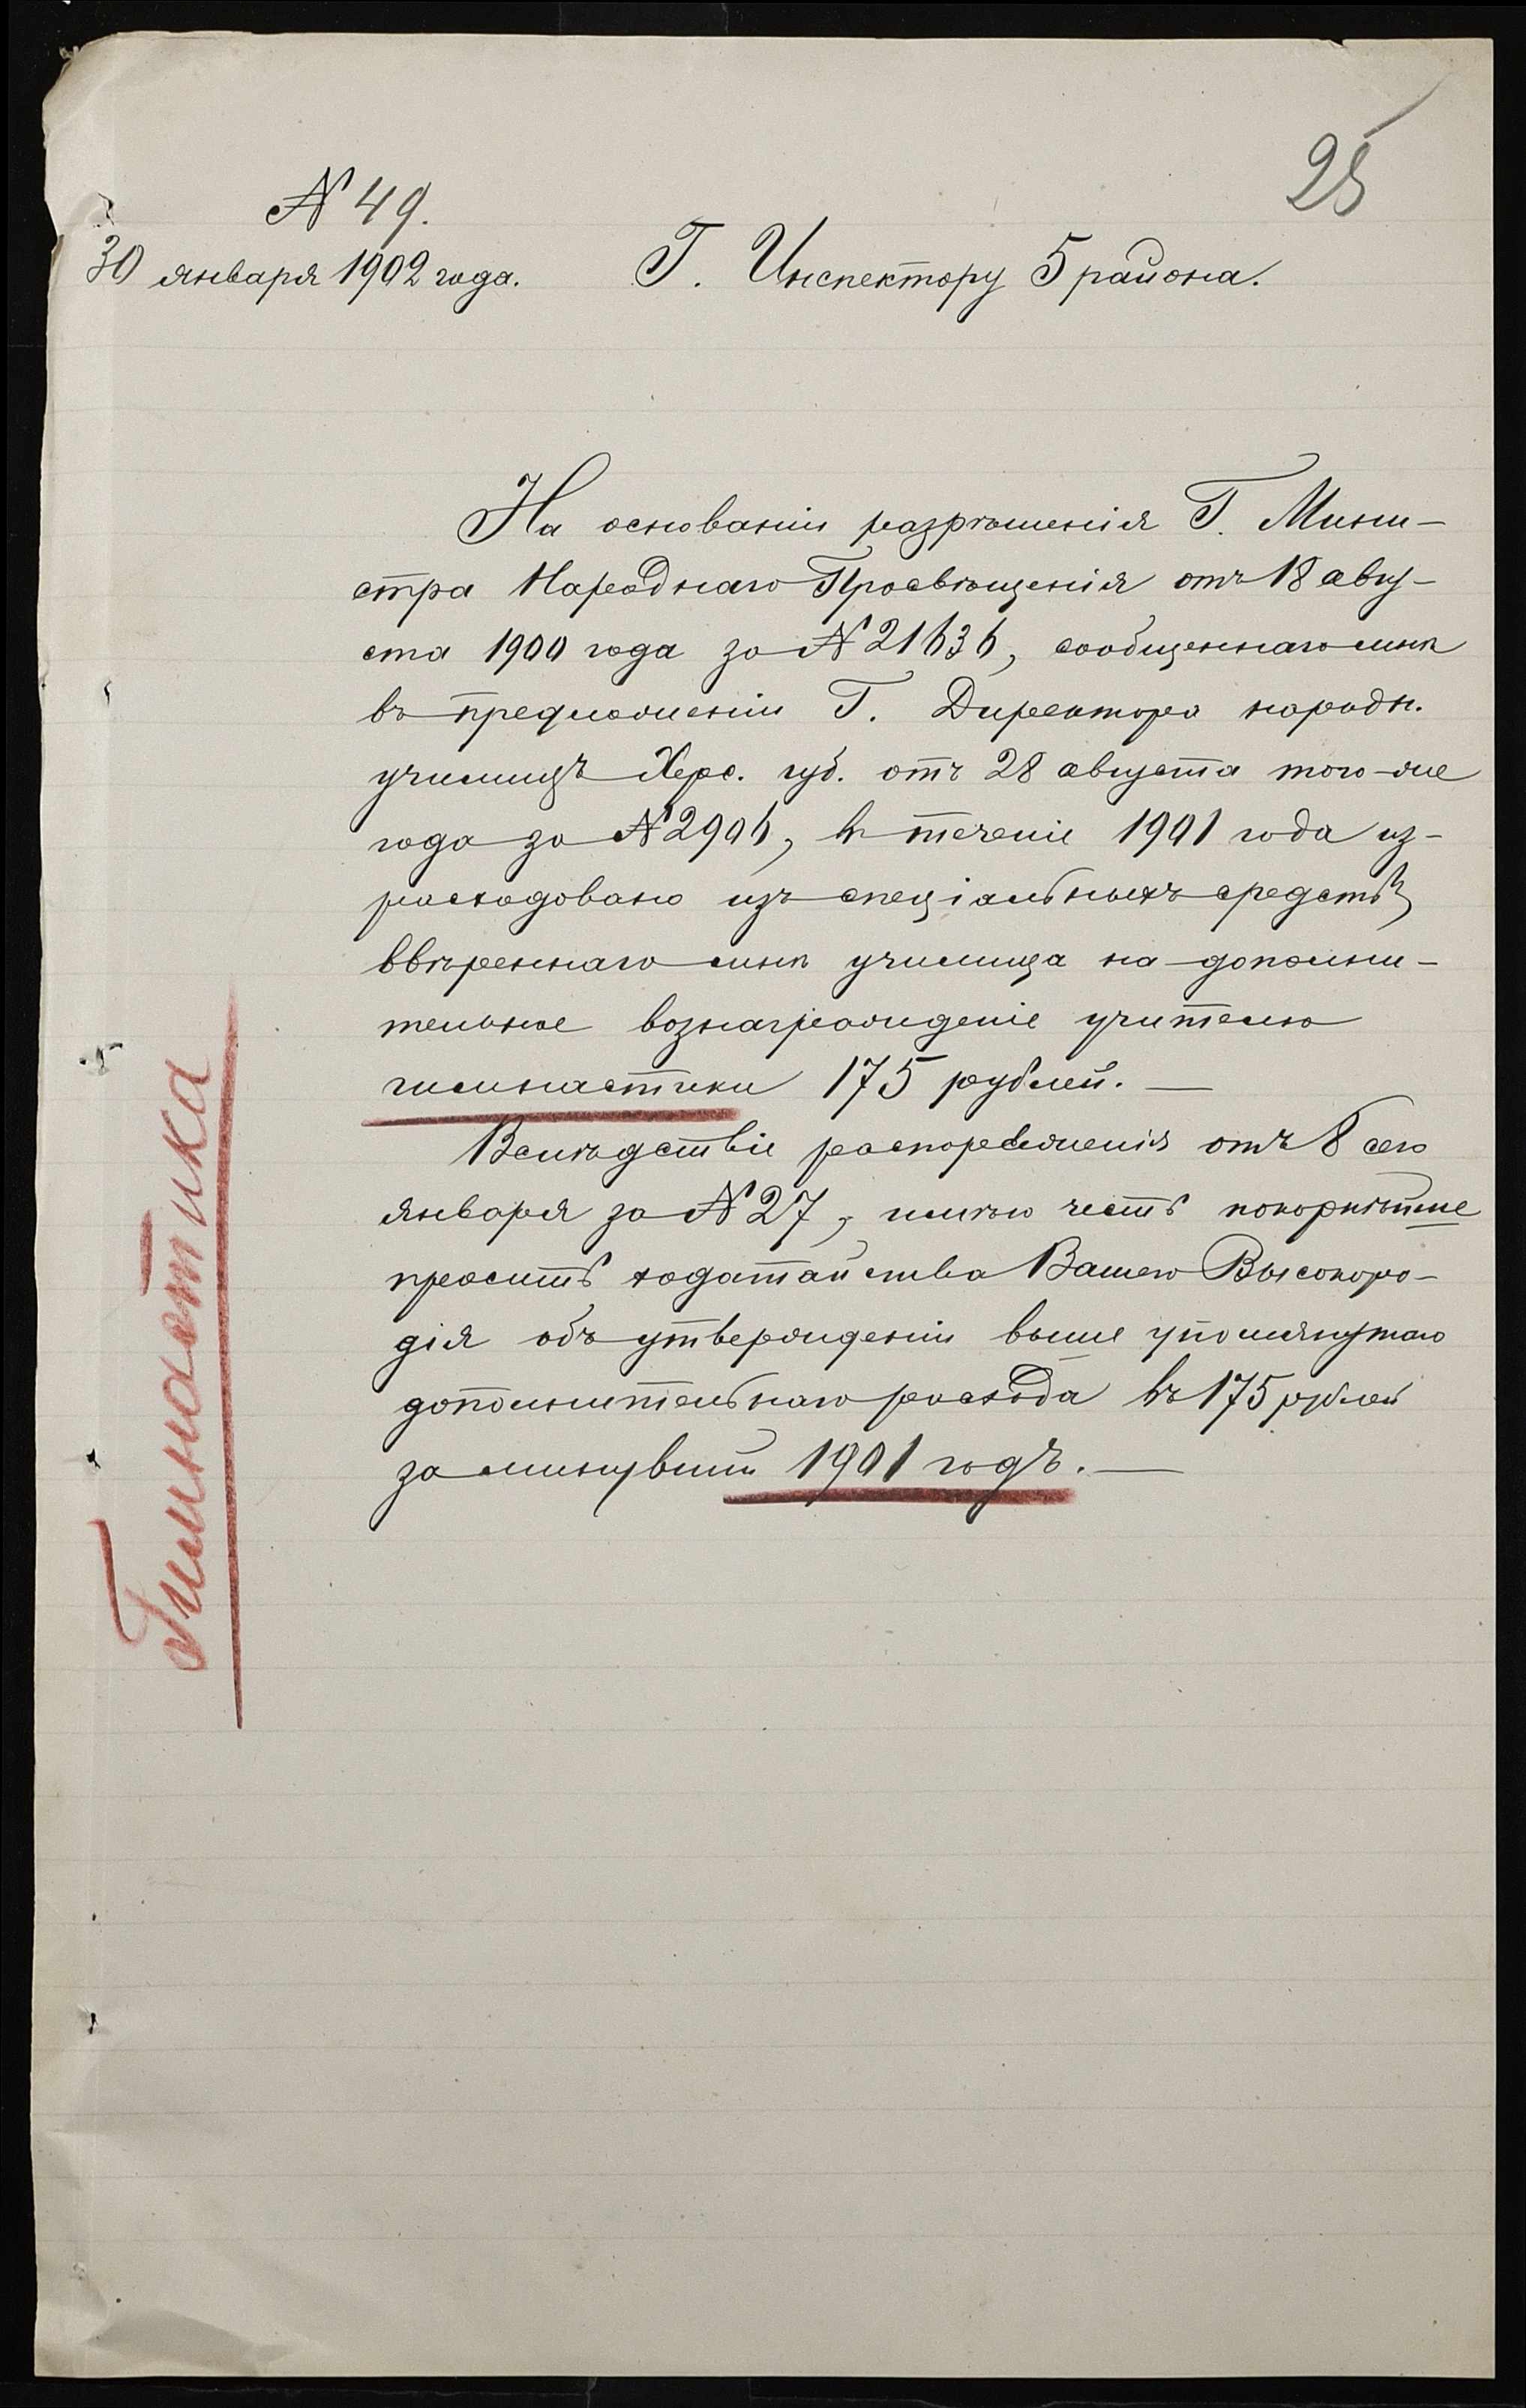 25
№ 49.
30 января 1902 года.
Г. Инспектору 5 района.
На основаніи разрѣшенія Г. Мини-
стра Народнаго Просвѣщенія отъ 18 авгу-
ста 1900 года за № 21636, сообщеннаго мнѣ
въ предложеніи Г. Директора народн.
училищъ Херс. губ. отъ 28 августа того-же
года за № 2906, въ теченіе 1901 года из-
расходовано изъ спеціальныхъ средствъ
ввѣреннаго мнѣ училища на дополни-
тельное вознагражденіе учителю
гимнастики 175 рублей. —
Вслѣдствіе распоряженія отъ 8 сего
января за № 27, имѣю честь покорнѣйше
просить ходатайства Вашего Высокоро-
дія объ утвержденіи выше упомянутаго
дополнительнаго расхода въ 175 рублей
за минувшій 1901 годъ. —
Гимнастика